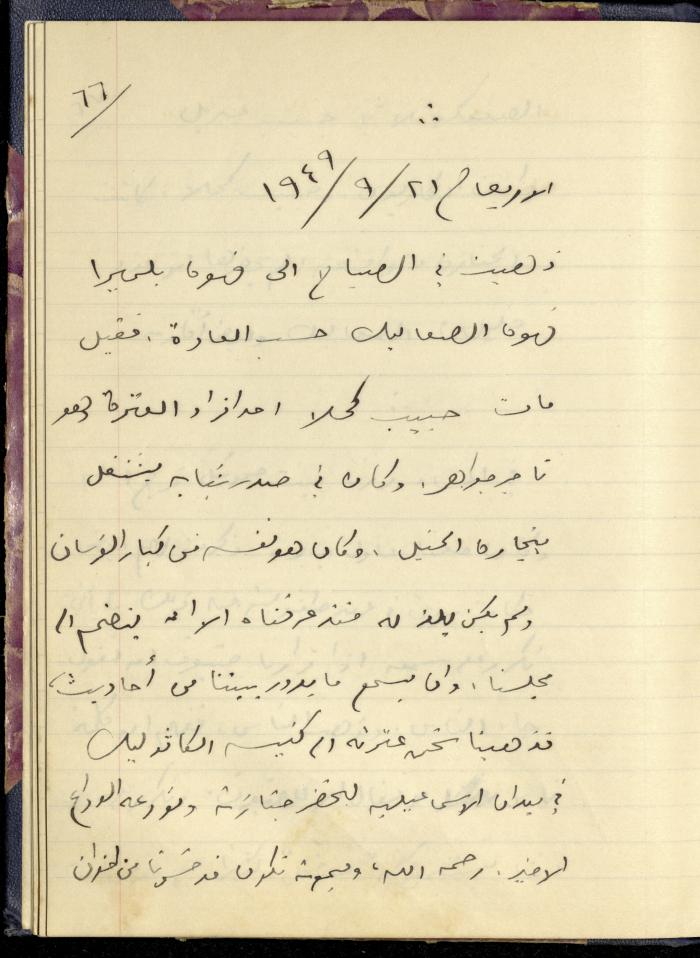 ٦٦/
الاربعاء ٢١/٩/١٩٤٩
ذهبت في الصباح الى قهوة بلميرا
قهوة الصعاليك حسب العادة، فقيل
مات حبيب كحلا احد افراد العترة وهو
تاجر جواهر، وكان في صدر شبابه يشتغل
بتجارة الخيل، وكان هو نفسه من كبار الفرسان
ولم يكن يلذ له منذ عرفناه الا ان ينضم الى
مجلسنا، وان يسمع ما يدور بيننا من أحاديث،
فذهبنا نحن عترته الى كنيسة الكاثوليك
في ميدان الاسماعيلية لنحضر جنازته ونودعه الوداع
الاخير. رحمه الله، وبموته نكون قد خسرنا من اخوان